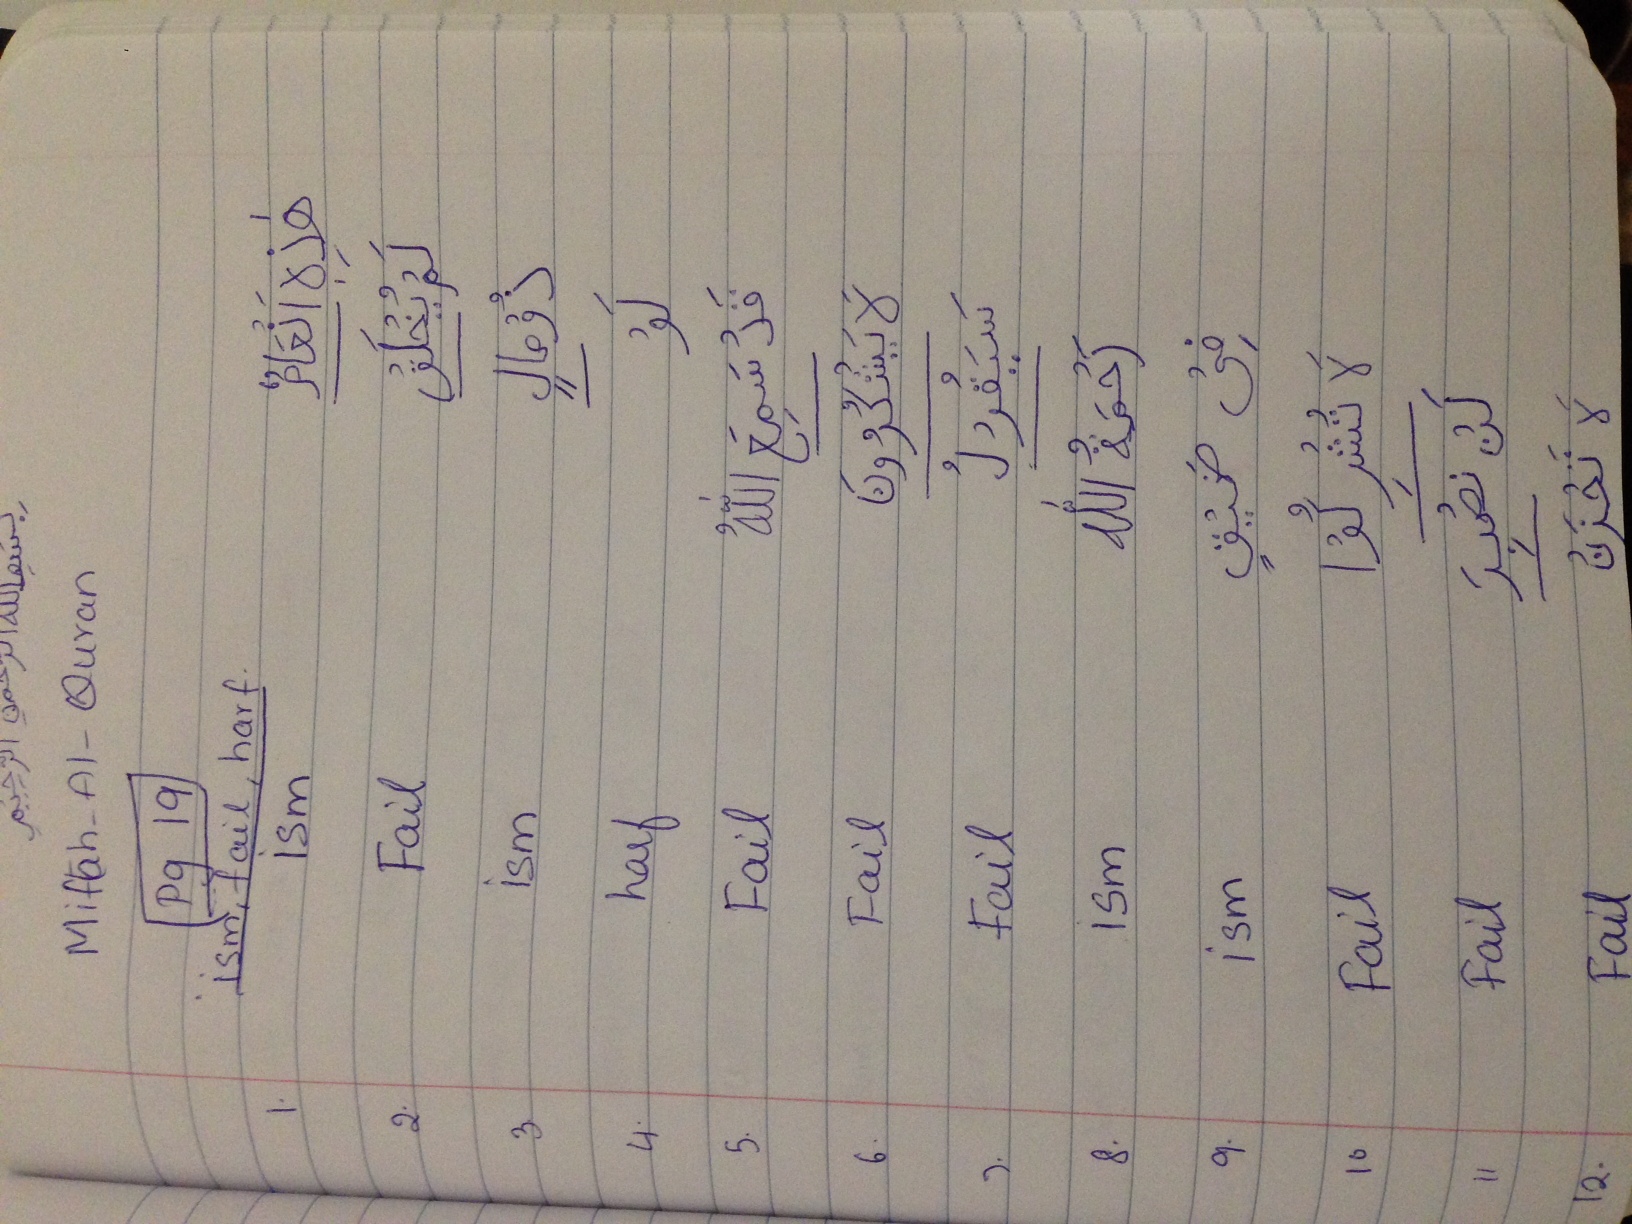 بسم الله الرحمن الرحيم
Miftah-Al-Quran
Pg 19
ism, fail, harf.
1. ism هٰذِهِ اَنْعَامٌ
2. Fail لَمْ يُخْلَقْ
3. ism ذُوْ مَالٍ
4. harf لَوْ
5. Fail قَدْ سَمِعَ اللّٰهُ
6. Fail لَا يَشْكُرُوْنَ
7. Fail سَيَقُوْلُ
8. ism رَحْمَةُ اللّٰه
9. ism فِىْ ضَيْقٍ
10 Fail لَا تُشْرِكُوْا
11 Fail لَنْ نَصْبِرَ
12. Fail لَا تَحْزَنْ